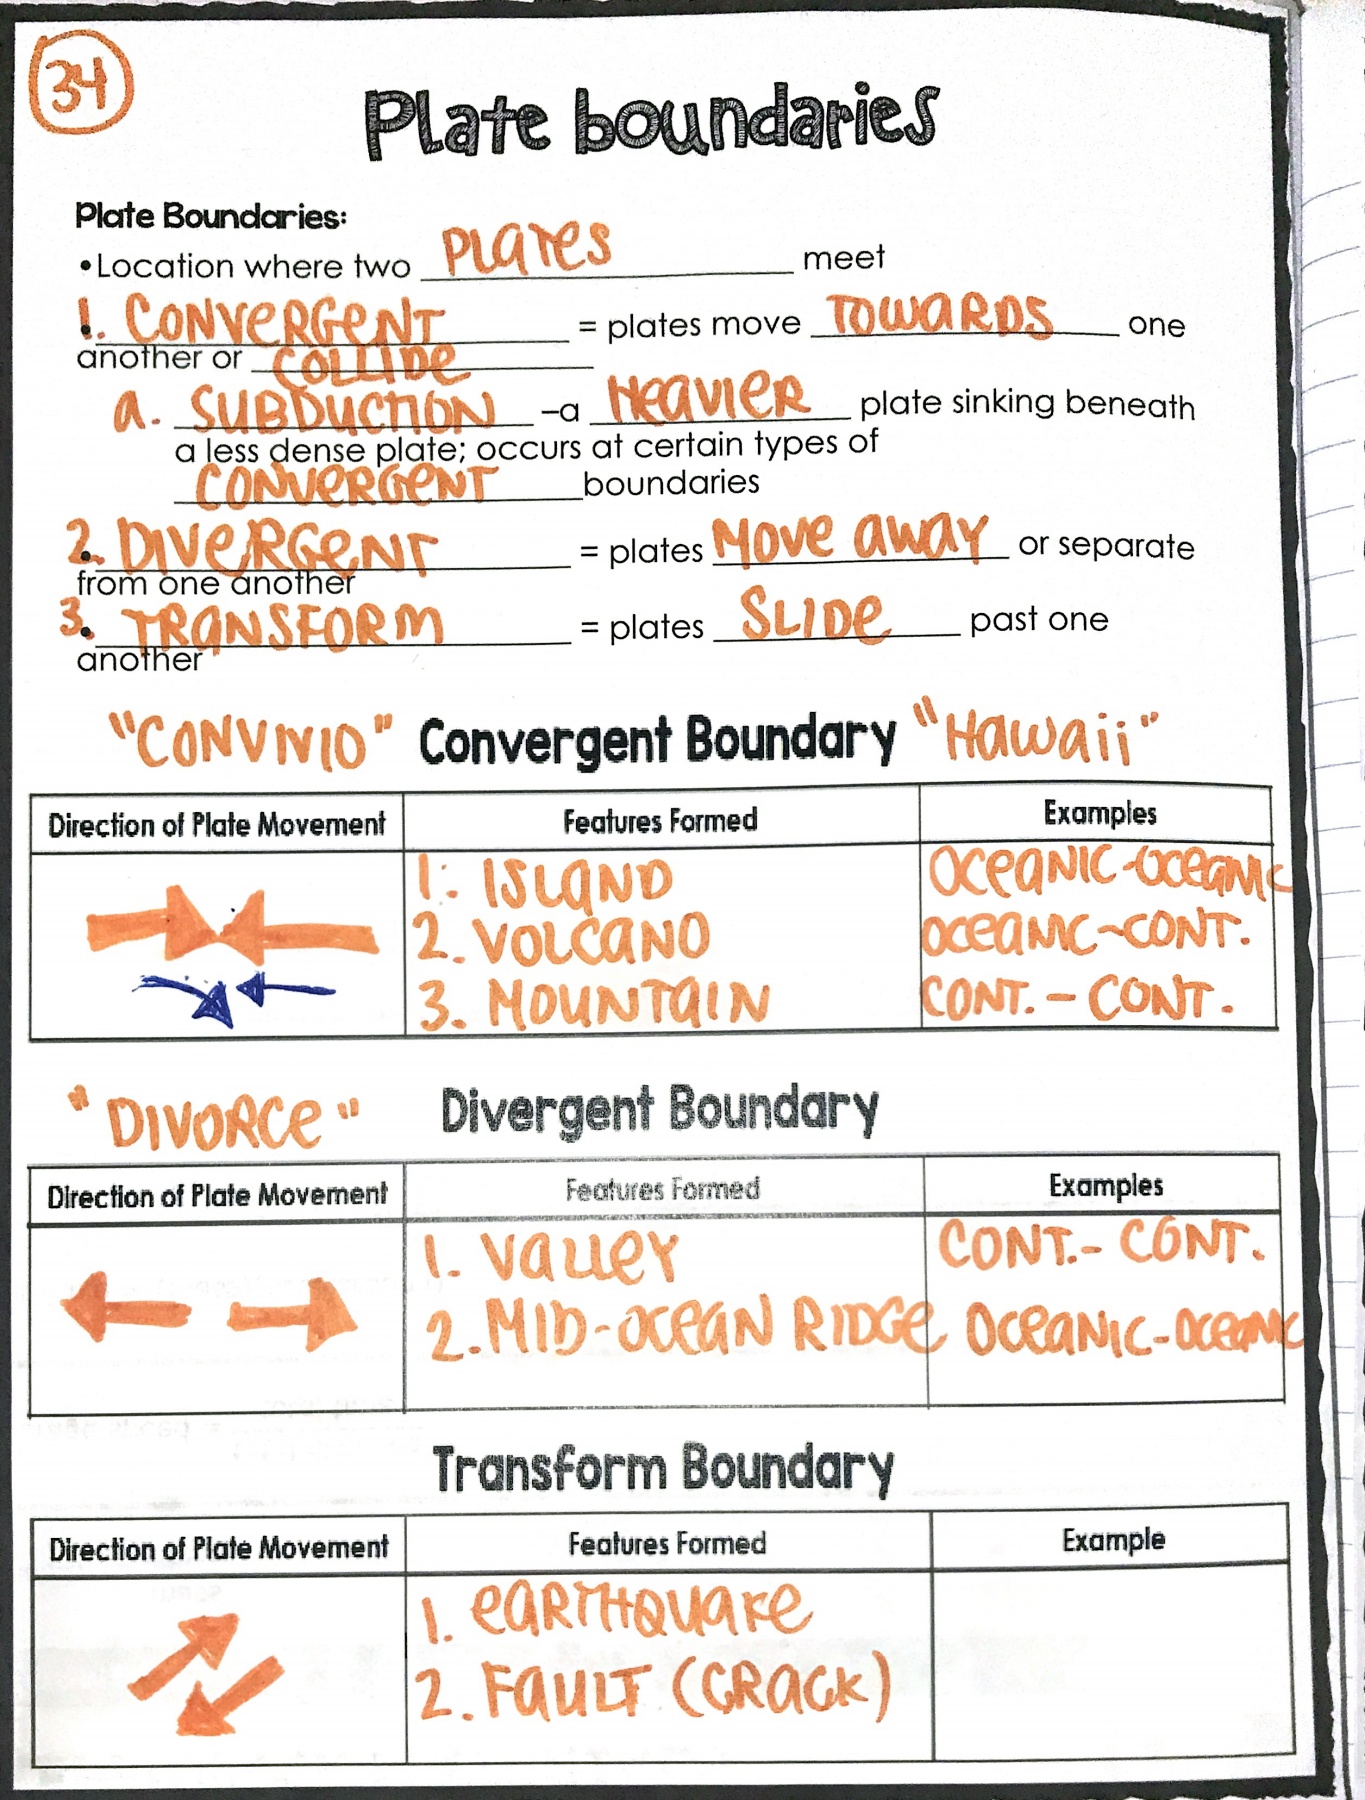 34
Plate boundaries
Plate Boundaries:
•Location where two PLATES meet
1. CONVERGENT = plates move TOWARDS one
another or COLLIDE
a. SUBDUCTION –a HEAVIER plate sinking beneath
a less dense plate; occurs at certain types of
CONVERGENT boundaries
2. DIVERGENT = plates MOVE AWAY or separate
from one another
3. TRANSFORM = plates SLIDE past one
another
"CONVIVIO" Convergent Boundary "HAWAII"
Direction of Plate Movement Features Formed Examples
1. ISLAND OCEANIC-OCEANIC
2. VOLCANO OCEANIC-CONT.
3. MOUNTAIN CONT. - CONT.
"DIVORCE" Divergent Boundary
Direction of Plate Movement Features Formed Examples
1. VALLEY CONT.- CONT.
2. MID-OCEAN RIDGE OCEANIC-OCEANIC
Transform Boundary
Direction of Plate Movement Features Formed Example
1. EARTHQUAKE
2. FAULT (CRACK)